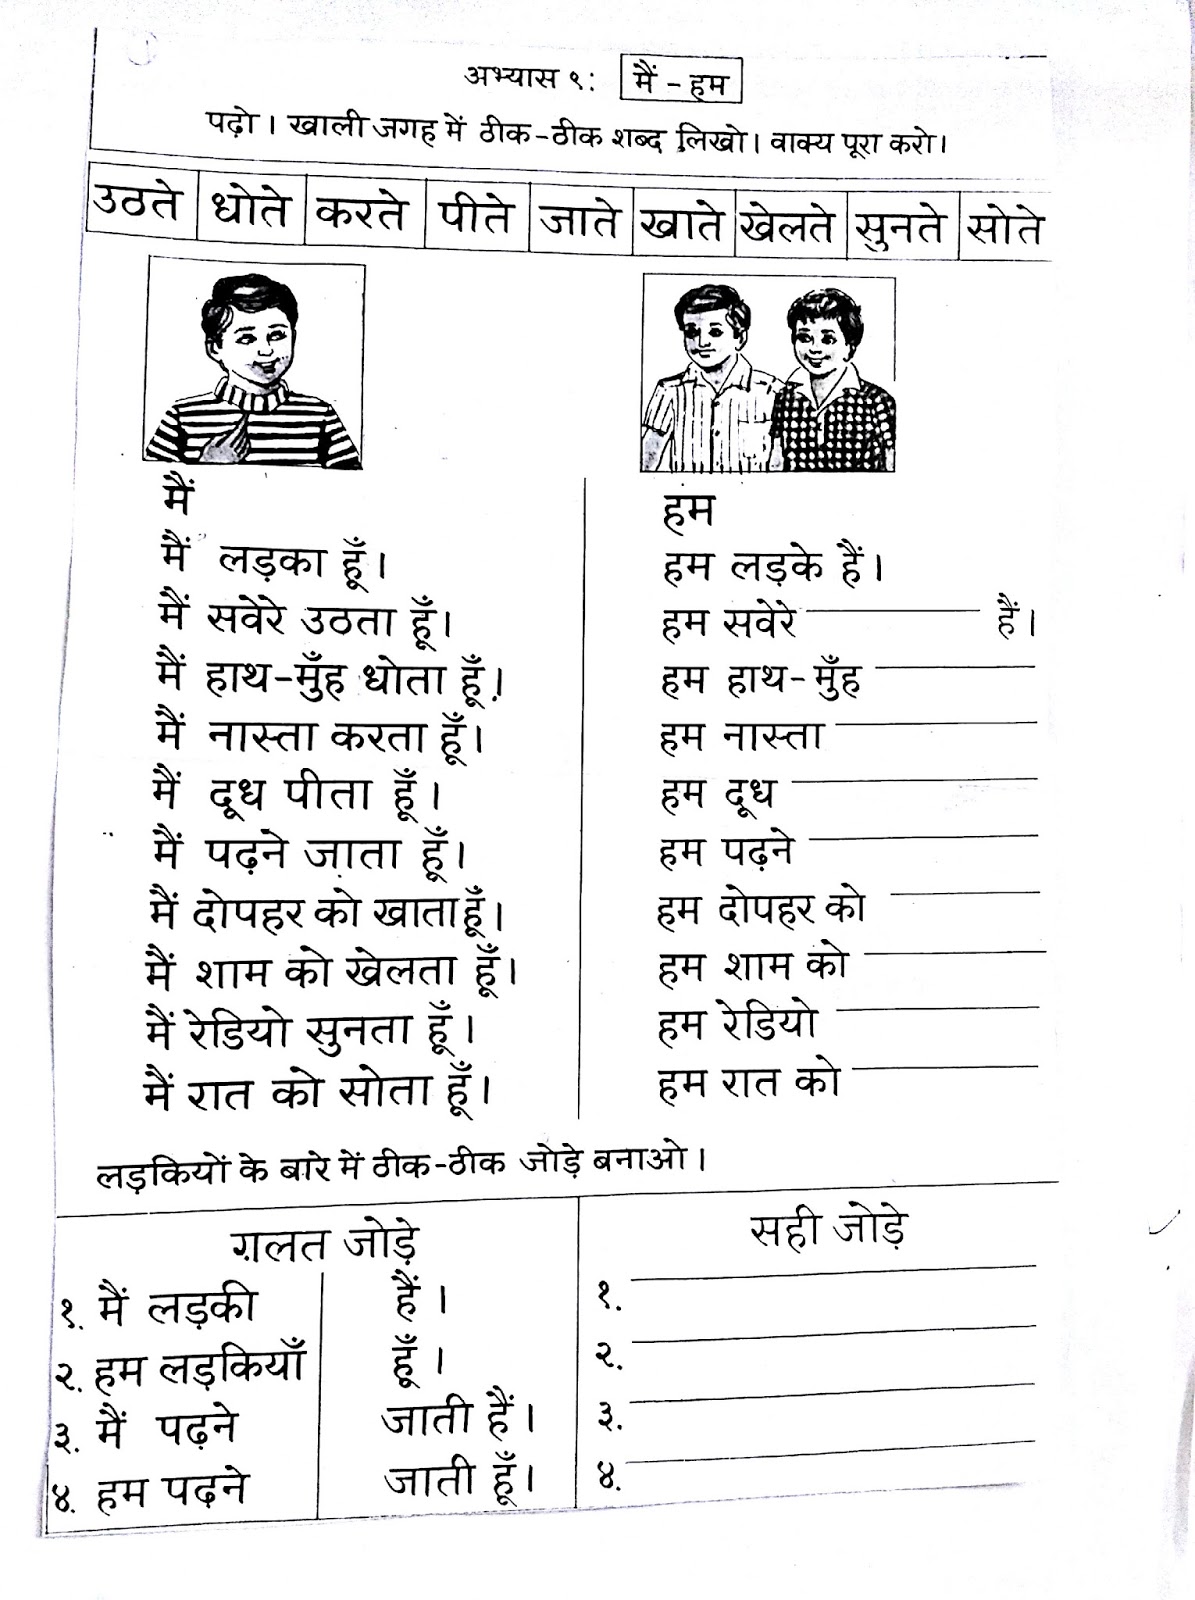 अभ्यास ९: मैं - हम
पढ़ो। खाली जगह में ठीक-ठीक शब्द लिखो। वाक्य पूरा करो।
उठते धोते करते पीते जाते खाते खेलते सुनते सोते
मैं
मैं लड़का हूँ।
मैं सवेरे उठता हूँ।
मैं हाथ-मुँह धोता हूँ।
मैं नास्ता करता हूँ।
मैं दूध पीता हूँ।
मैं पढ़ने जाता हूँ।
मैं दोपहर को खाता हूँ।
मैं शाम को खेलता हूँ।
मैं रेडियो सुनता हूँ।
मैं रात को सोता हूँ।
हम
हम लड़के हैं।
हम सवेरे ______ हैं।
हम हाथ-मुँह ______
हम नास्ता ______
हम दूध ______
हम पढ़ने ______
हम दोपहर को ______
हम शाम को ______
हम रेडियो ______
हम रात को ______
लड़कियों के बारे में ठीक-ठीक जोड़े बनाओ।
ग़लत जोड़े
१. मैं लड़की हैं।
२. हम लड़कियाँ हूँ।
३. मैं पढ़ने जाती हैं।
४. हम पढ़ने जाती हूँ।
सही जोड़े
१. ______
२. ______
३. ______
४. ______